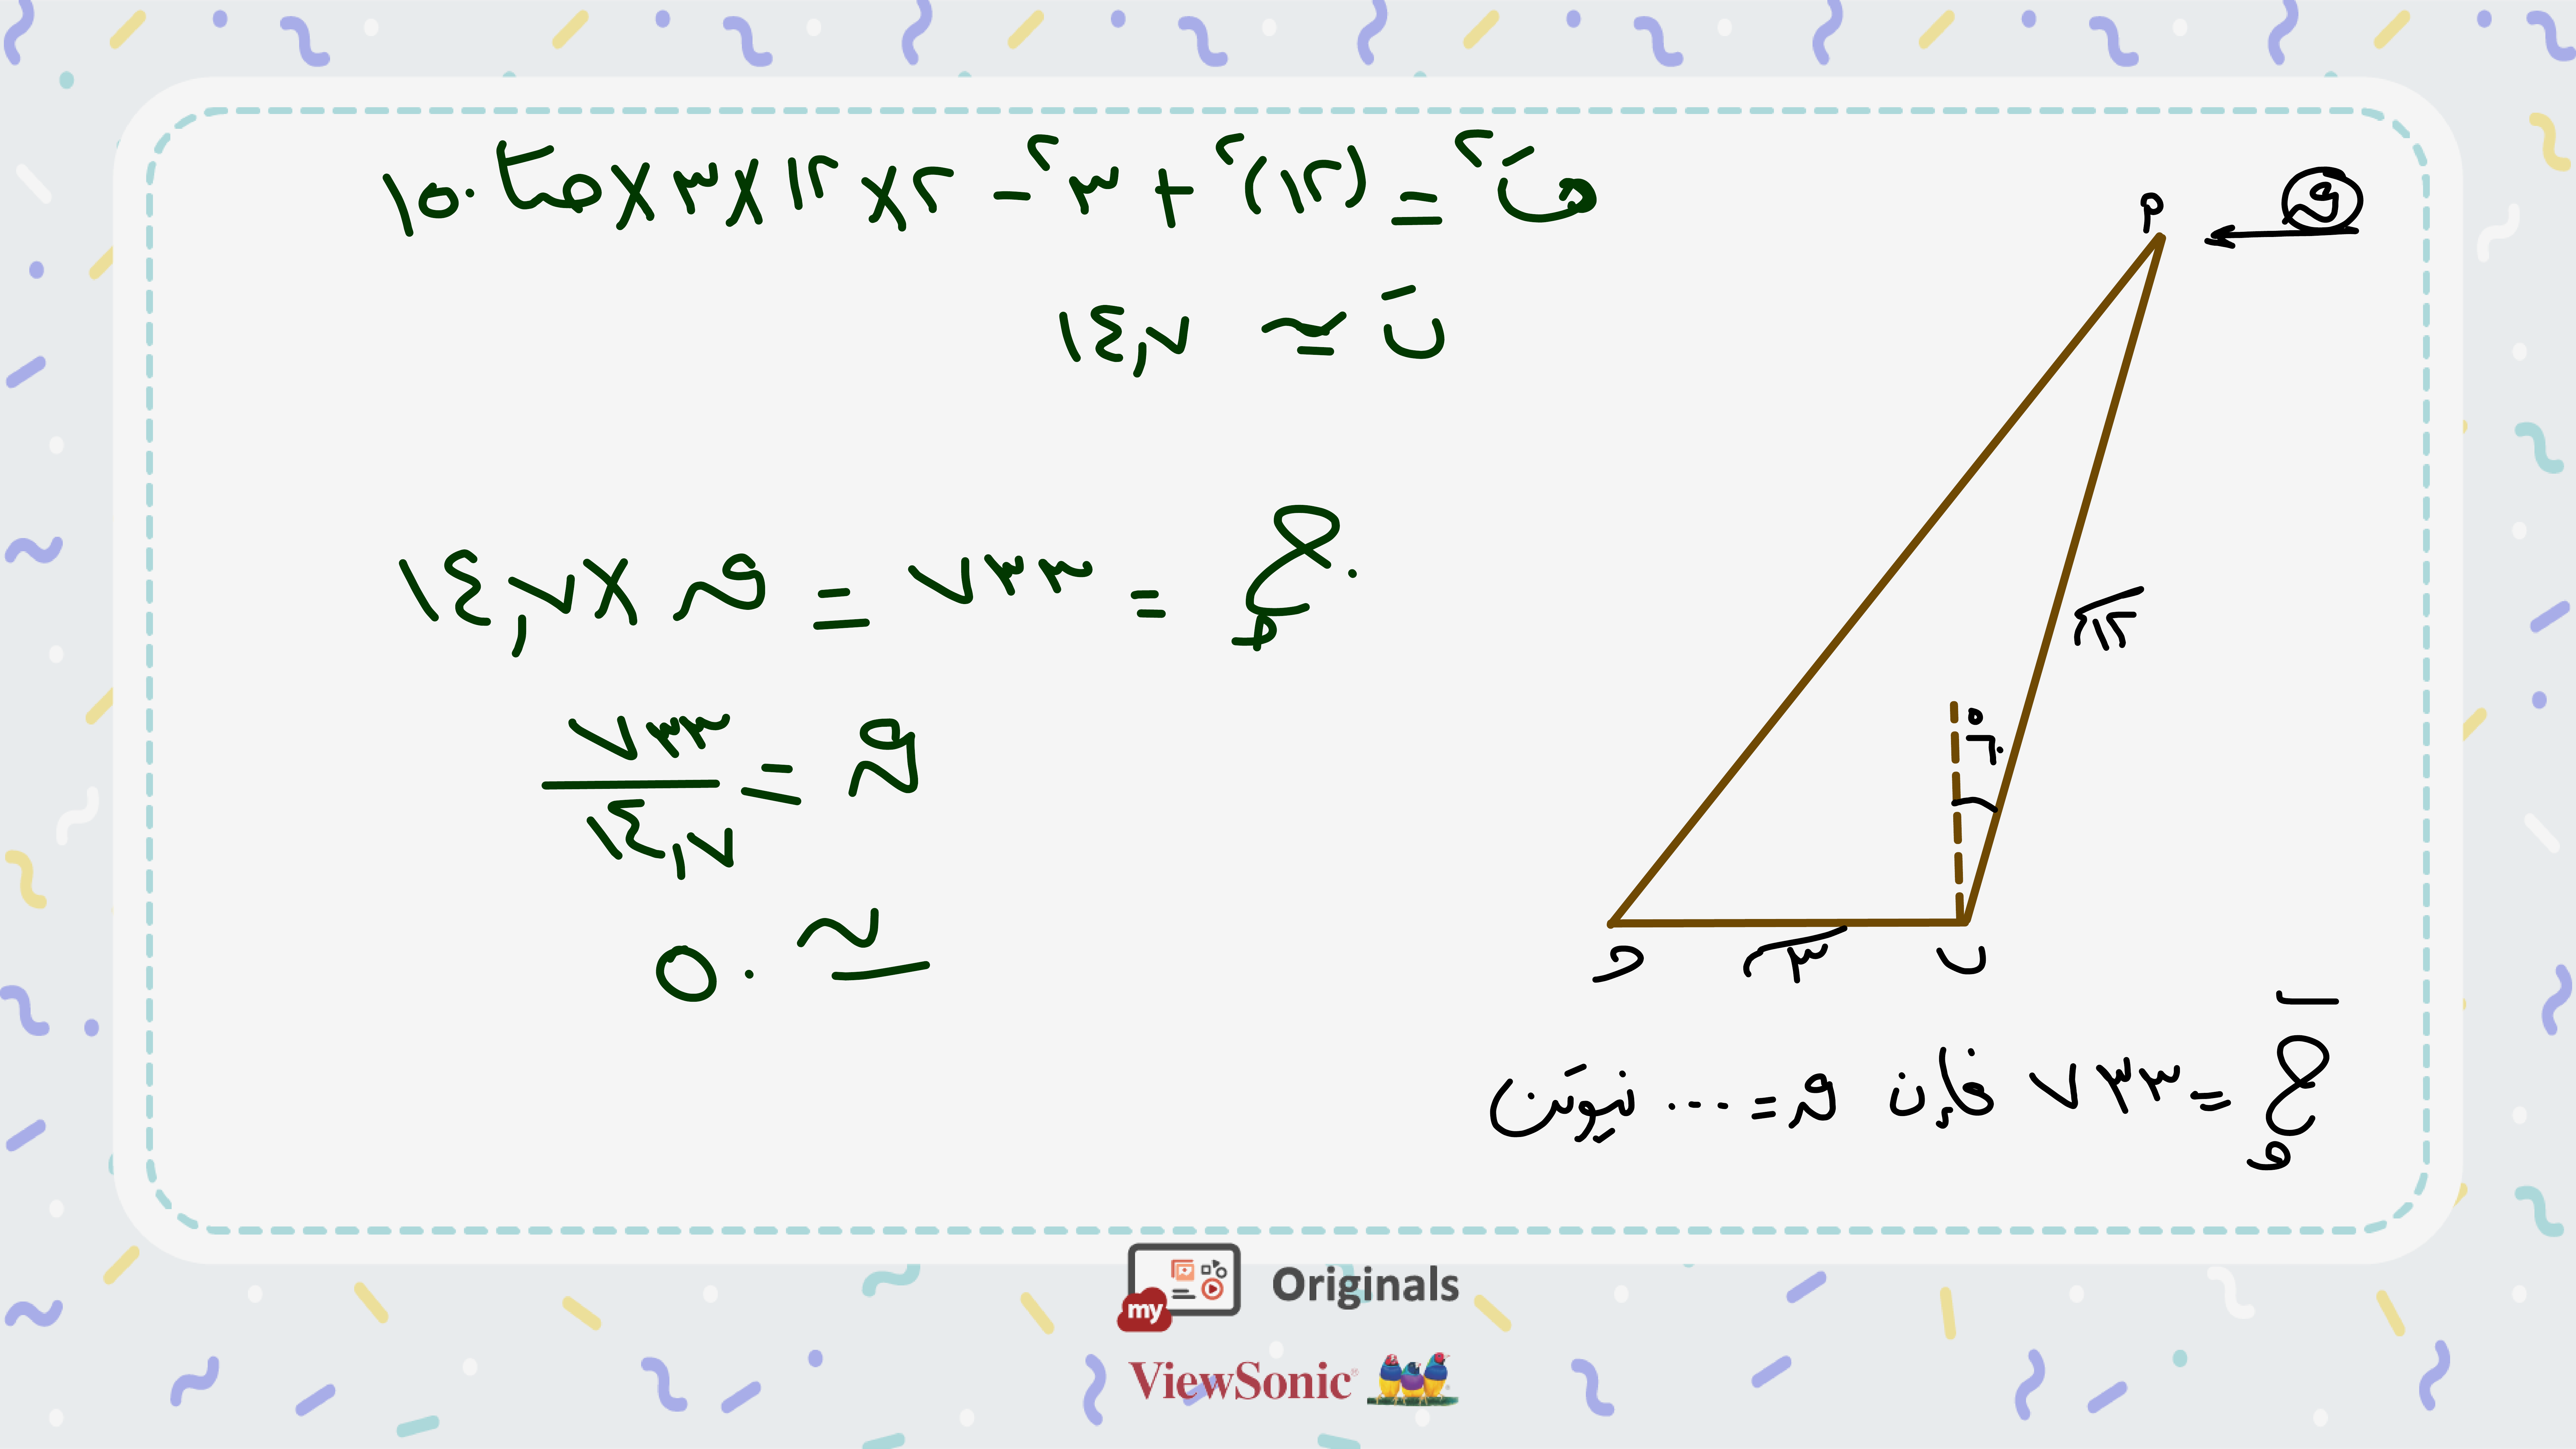 بَ² = (١٢)² + ٣² − ٢×١٢×٣×حتا ١٥٠
بَ ≃ ١٤,٧
ج = ٧٣٣ = ق × ١٤,٧
ق = ٧٣٣ / ١٤,٧
≃ ٥٠
ق
٢
١٢
٣٠°
ب
٣
ج = ٧٣٣ فإن ق = ... نيوتن
my Originals
ViewSonic